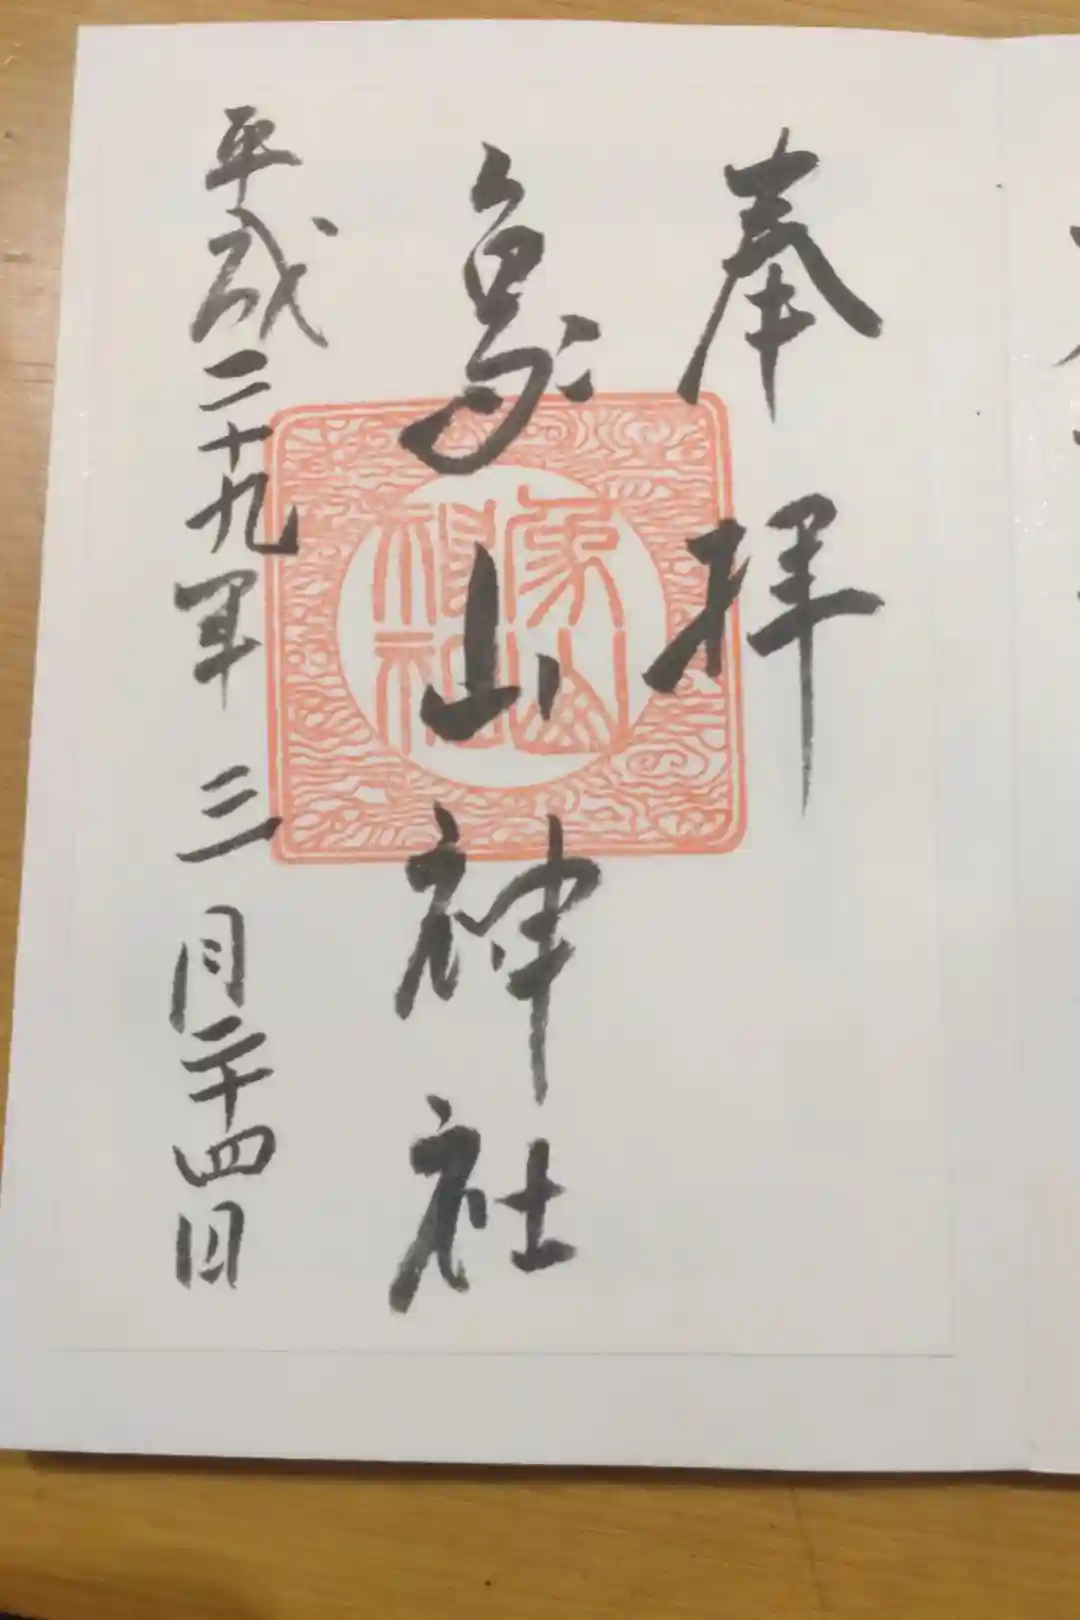 奉拝
象山神社
象山神社
平成二十九年三月二十四日